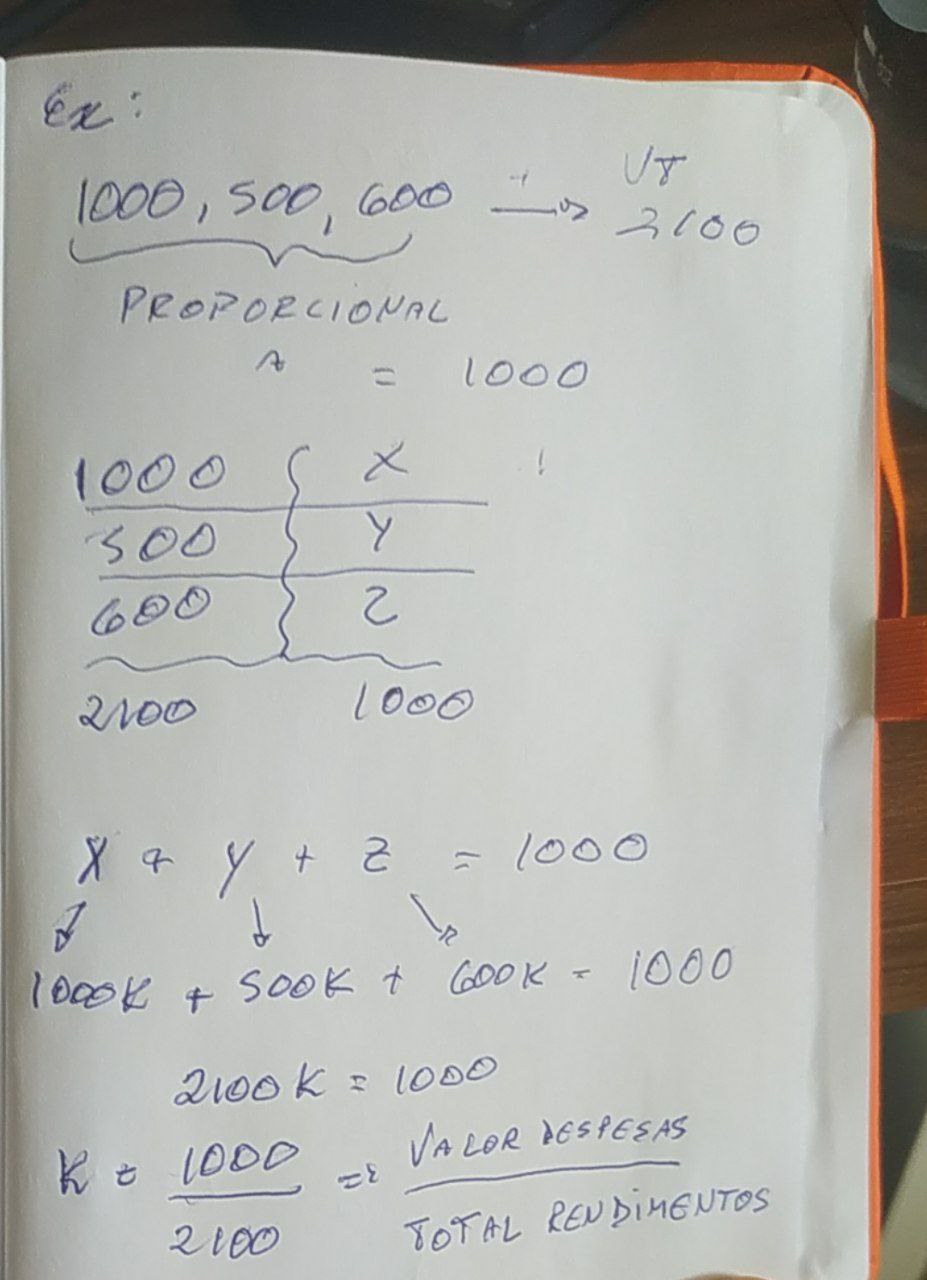 Ex:
1000, 500, 600 → VT
2100
PROPORCIONAL
A = 1000
1000 X
500 Y
600 Z
2100 1000
X + Y + Z = 1000
1000K + 500K + 600K = 1000
2100K = 1000
K = 1000 = VALOR DESPESAS
2100 TOTAL RENDIMENTOS